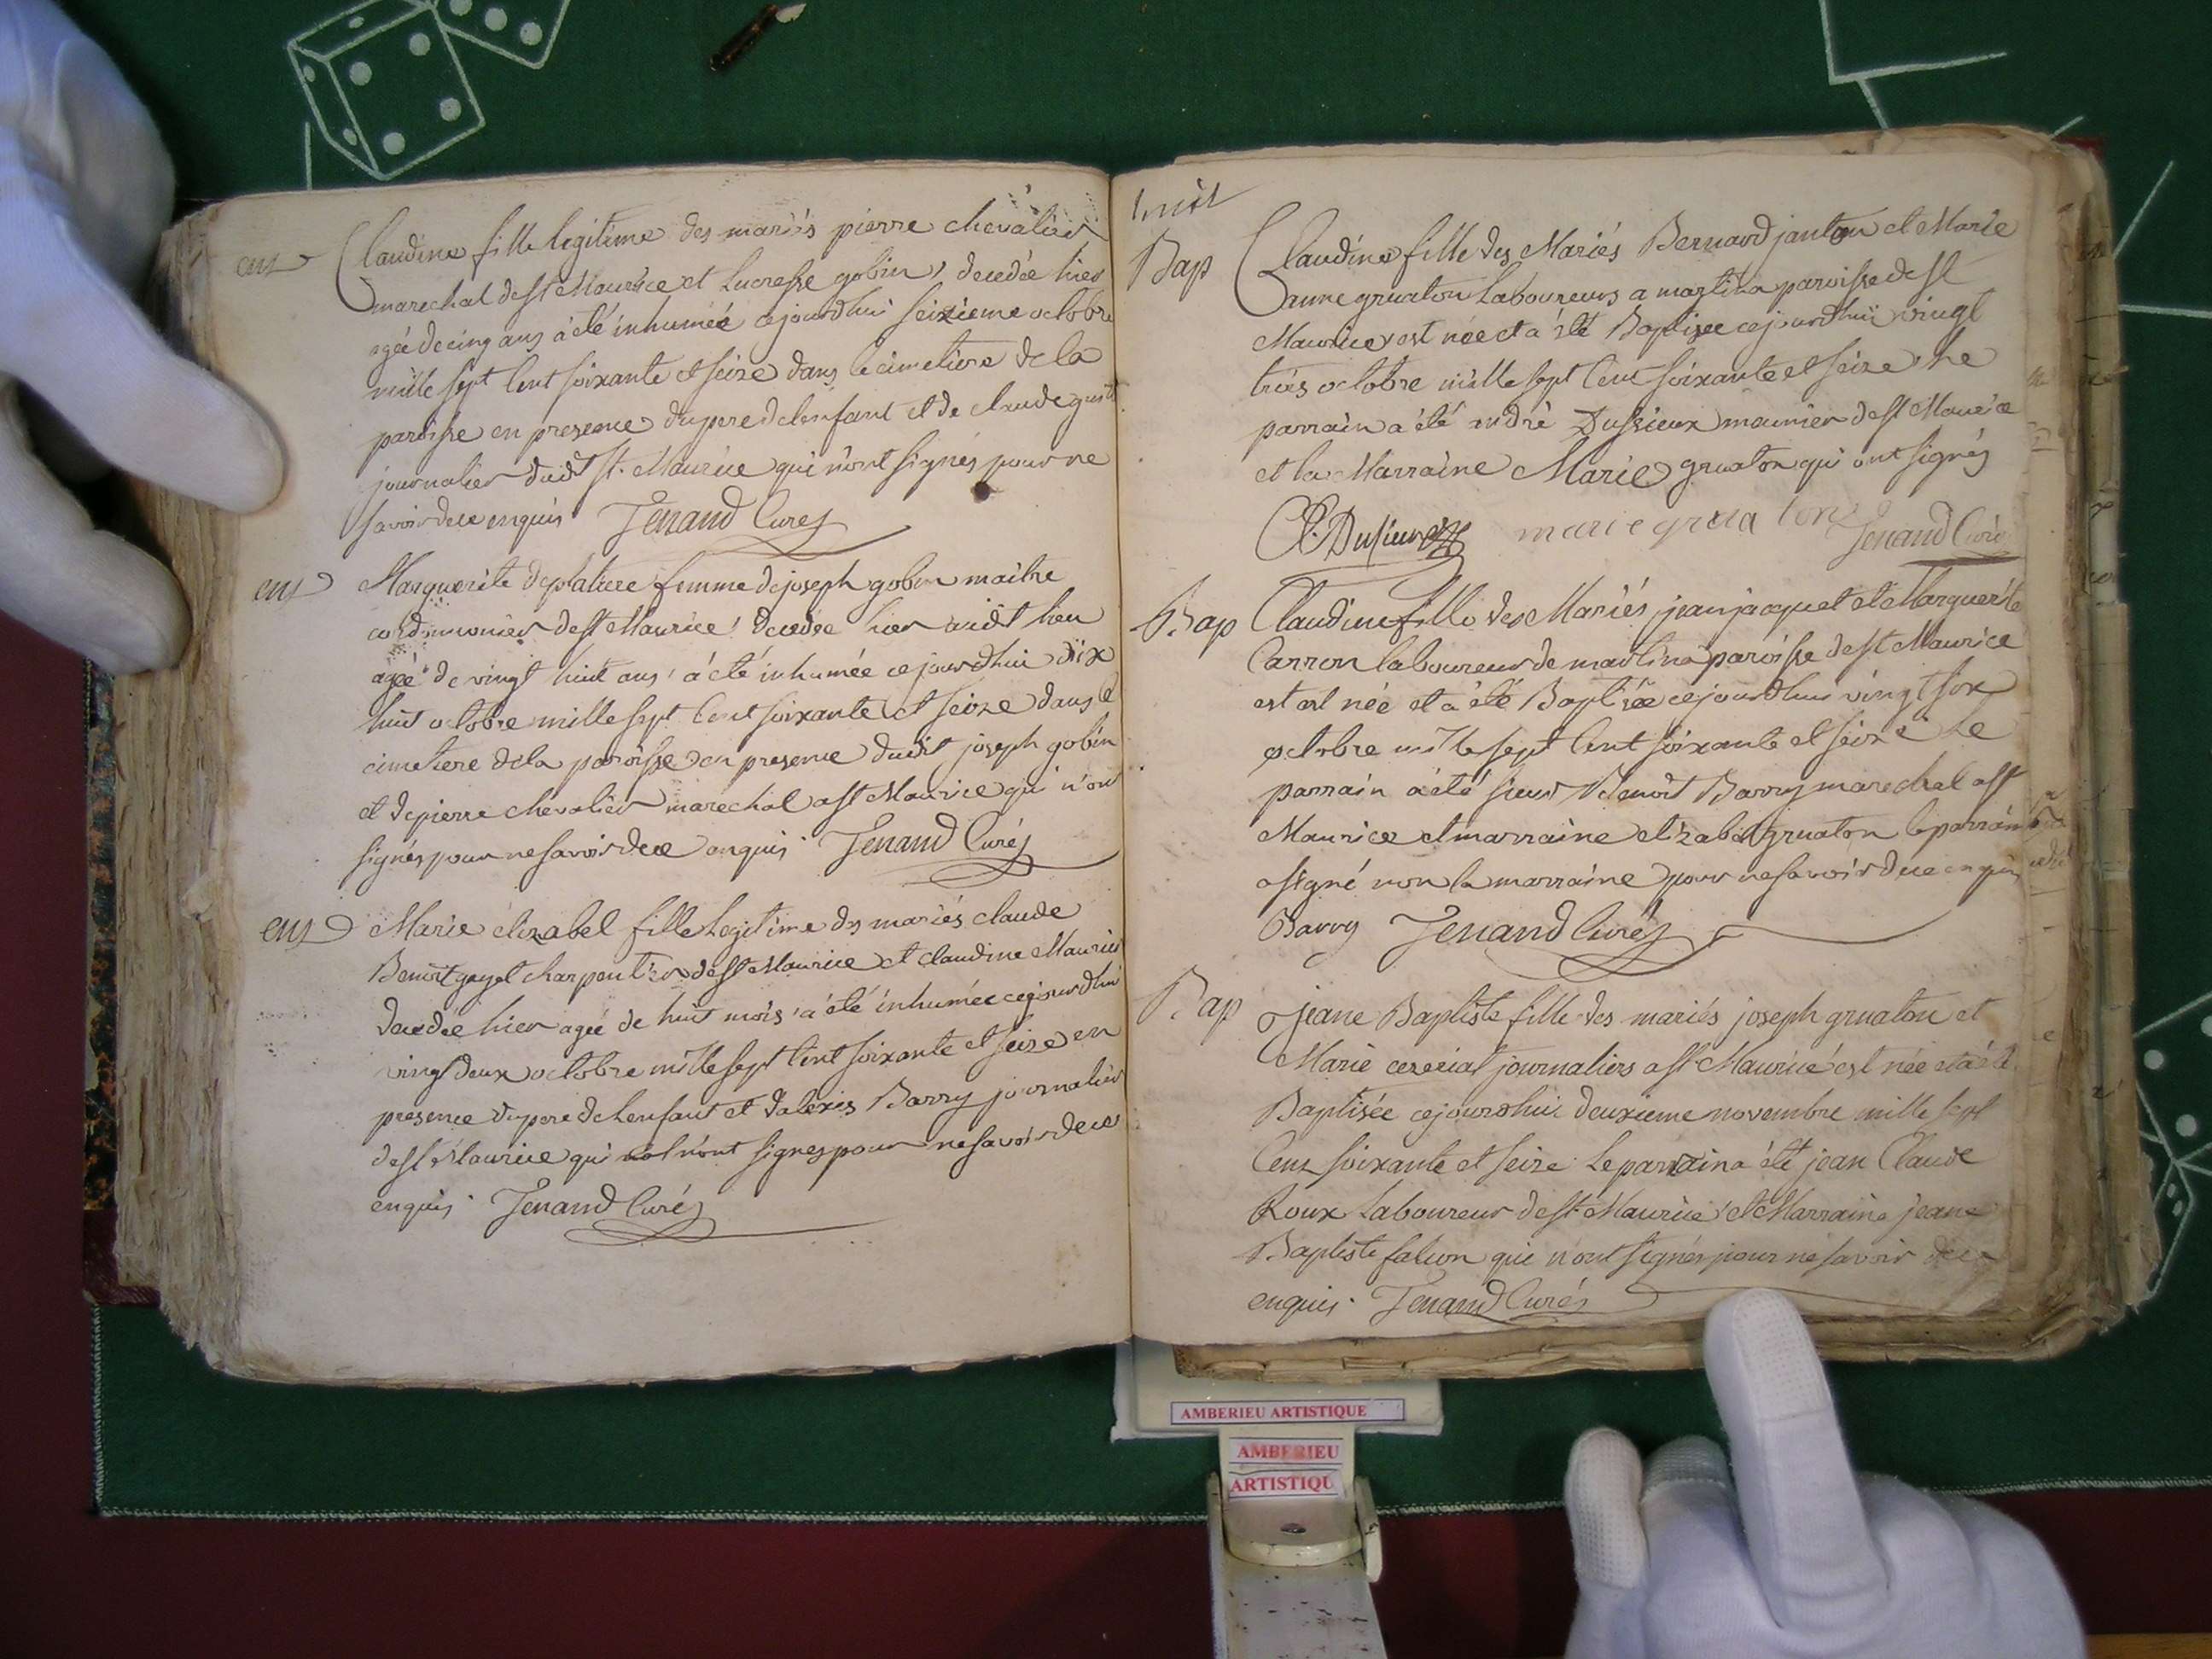 ent Claudine fille legitime des mariés pierre chevalier
marechal de st Maurice et Lucresse gobin, decedée hier
agée de cinq ans à été inhumée cejourdhui seizieme octobre
mille sept Cent soixante et seize dans le cimetiere de la
paroisse en presence du pere de lenfant et de claude
journalier dudt st. Maurice qui n'ont signés pour ne
savoir de ce enquis Tenand Curé
ent Marguerite deplatiere femme de joseph gobin maitre
cordonnonier de st Maurice decedée hier audt lieu
agée de vingt huit ans à été inhumée ce jourdhui dix
huit octobre mille sept Cent soixante et seize dans le
cimetiere de la paroisse en presence dudit joseph gobin
et de pierre chevalier marechal a st Maurice qui n'ont
signés pour ne savoir de ce enquis. Tenand Curé
ent Marie elizabel fille legitime des mariés claude
Benoit gayet charpentier de st Maurice et claudine Maurier
decedée hier agée de huit mois à été inhumée cejourdhui
vingt deux octobre mille sept Cent soixante et seize en
presence du pere de lenfant et dalexis Barry journalier
de st Maurice qui n'ont signés pour ne savoir de ce
enquis. Tenand Curé
huit
Bap Claudine fille des Mariés Bernard janton et Marie
anne gruaton Laboureurs a martina paroisse de st
Maurice est née et a été Baptisée cejourdhui vingt
trois octobre mille sept Cent soixante et seize Le
parrain a été andré Dussieux maunier de st Maurice
et la Marraine Marie gruaton qui ont signés
marie grua ton Tenand Curé
Bap Claudine fille des Mariés jean jacquet et Marguerite
Carron laboureur de martina paroisse de st Maurice
est est née et à été Baptisée cejourdhui vingt six
octobre mille sept Cent soixante et seize Le
parrain a été sieur Benoit Barry marechal a st
Maurice et marraine elizabet gruaton le parrain
a signé non la marraine pour ne savoir de ce enquis
Barry Tenand Curé
Bap jeane Baptiste fille des mariés joseph gruaton et
Marie cereciat journaliers a st. Maurice est née et a été
Baptisée cejourdhui deuxieme novembre mille sept
Cent soixante et seize. Le parrain a été jean Claude
Roux Laboureur de st. Maurice et Marraine jeane
Baptiste falcon qui n'ont signés pour ne savoir de ce
enquis. Tenand Curé
AMBERIEU ARTISTIQUE
AMBERIEU
ARTISTIQU